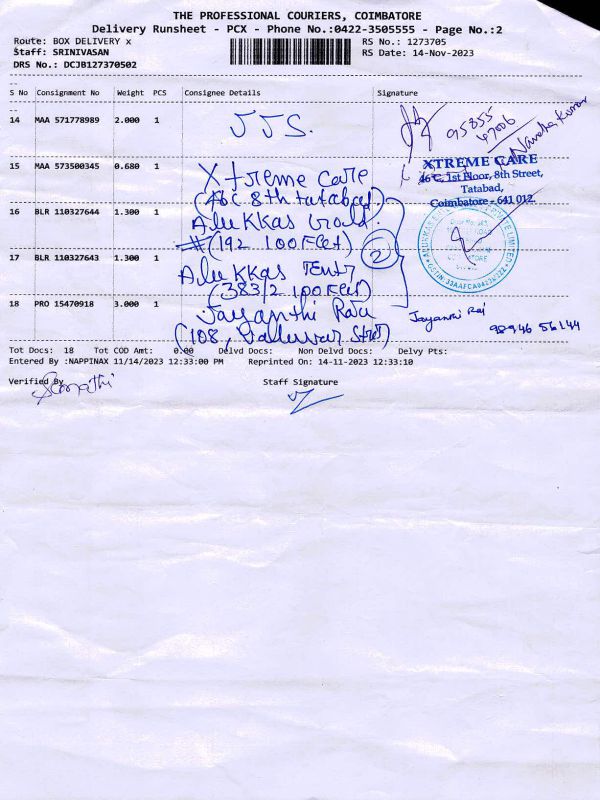 THE PROFESSIONAL COURIERS, COIMBATORE
Delivery Runsheet - PCX - Phone No.:0422-3505555 - Page No.:2
Route: BOX DELIVERY x
RS No.: 1273705
Staff: SRINIVASAN
RS Date: 14-Nov-2023
DRS No.: DCJB127370502
S No Consignment No Weight PCS Consignee Details Signature
14 MAA 571778989 2.000 1 JJS.
95855
47006
15 MAA 573500345 0.680 1 Xtreme care
(46c 8th tatabad)
XTREME CARE
46 C, 1st Floor, 8th Street,
Tatabad,
Coimbatore - 641 012.
16 BLR 110327644 1.300 1 Alukkas Gold.
(192 100Feet)
2
17 BLR 110327643 1.300 1 Alukkas
(383/2 100Feet)
18 PRO 15470918 3.000 1 Jayanthi Raj
(108,
98946 56144
Tot Docs: 18 Tot COD Amt: 0.00 Delvd Docs: Non Delvd Docs: Delvy Pts:
Entered By :NAPPINAX 11/14/2023 12:33:00 PM Reprinted On: 14-11-2023 12:33:10
Verified By
Staff Signature